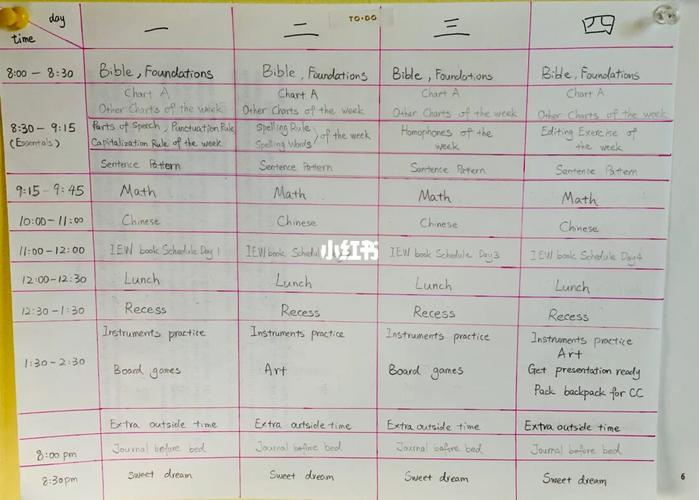 TO·DO
day 一 二 三 四
time
8:00 - 8:30 Bible, Foundations Bible, Foundations Bible, Foundations Bible, Foundations
Chart A Chart A Chart A Chart A
Other Charts of the week Other Charts of the week Other Charts of the week Other Charts of the week
8:30 - 9:15 Parts of Speech, Punctuation Rule Spelling Rule Homophones of the Editing Exercise of
(Essentials) Capitalization Rule of the week Spelling Words of the week week the week
Sentence Pattern Sentence Pattern Sentence Pattern Sentence Pattern
9:15 - 9:45 Math Math Math Math
10:00 - 11:00 Chinese Chinese Chinese Chinese
11:00 - 12:00 IEW book Schedule Day 1 IEW book Schedule IEW book Schedule Day 3 IEW book Schedule Day 4
小红书
12:00-12:30 Lunch Lunch Lunch Lunch
12:30 - 1:30 Recess Recess Recess Recess
Instruments practice Instruments practice Instruments practice Instruments practice
1:30 - 2:30 Board games Art Board games Art
Get presentation ready
Pack backpack for CC
Extra outside time Extra outside time Extra outside time Extra outside time
8:00 pm Journal before bed Journal before bed Journal before bed Journal before bed
8:30pm Sweet dream Sweet dream Sweet dream Sweet dream
6